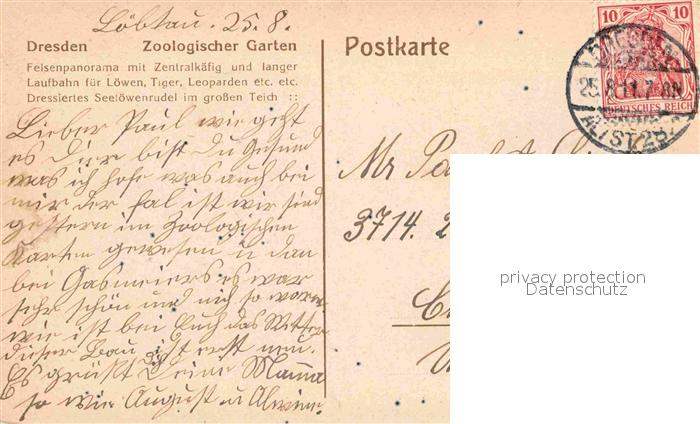 Löbtau. 25.8.
Dresden Zoologischer Garten
Felsenpanorama mit Zentralkäfig und langer
Laufbahn für Löwen, Tiger, Leoparden etc. etc.
Dressiertes Seelöwenrudel im großen Teich ::
Lieber Paul wie geht
es Dier bist du Gesund
was ich hofe was auch bei
mir der fal ist wir sind
gestern im Zoologischen
Karten gewesen u dan
bei Gasmeiers es war
sehr schön und nich so warm
wie ist bei Euch das Wetter
dieser Bau ist erst neu.
Es grüßt Dich Deine Mamma
so wie August u Alwine.
Postkarte
Mr Paul
3714. 2
10 10
DEUTSCHES REICH
DRESDEN
25.8.11. 7-8N
ALTST. 2
privacy protection
Datenschutz